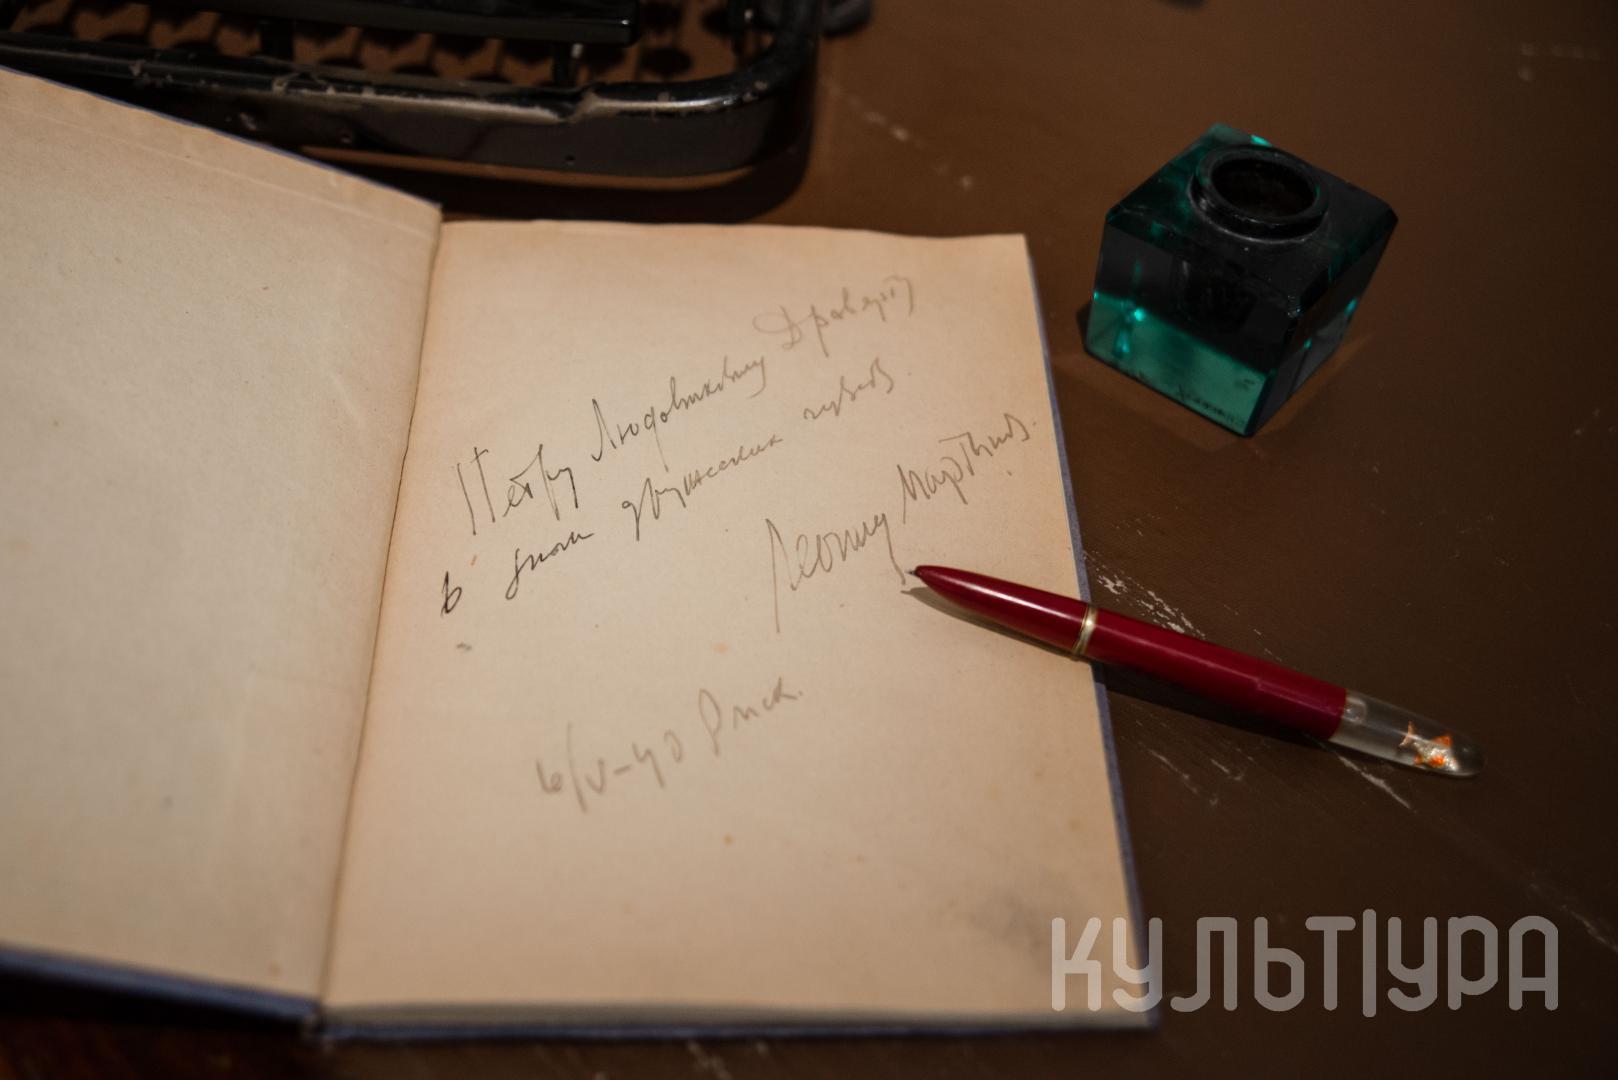 Петру Людовиковичу Драверту
в знак дружеских чувств.
Леонид Мартынов.
6/V-40 Омск.
КУЛЬТУРА